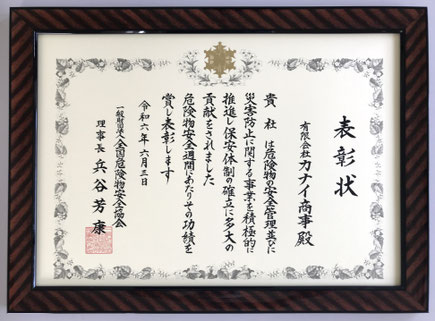 表彰状
有限会社カナイ商事殿
貴社は危険物の安全管理並びに
災害防止に関する事業を積極的に
推進し保安体制の確立に多大の
貢献をされました
危険物安全週間にあたりその功績を
賞し表彰します
令和六年六月三日
一般財団法人全国危険物安全協会
理事長 兵谷芳康